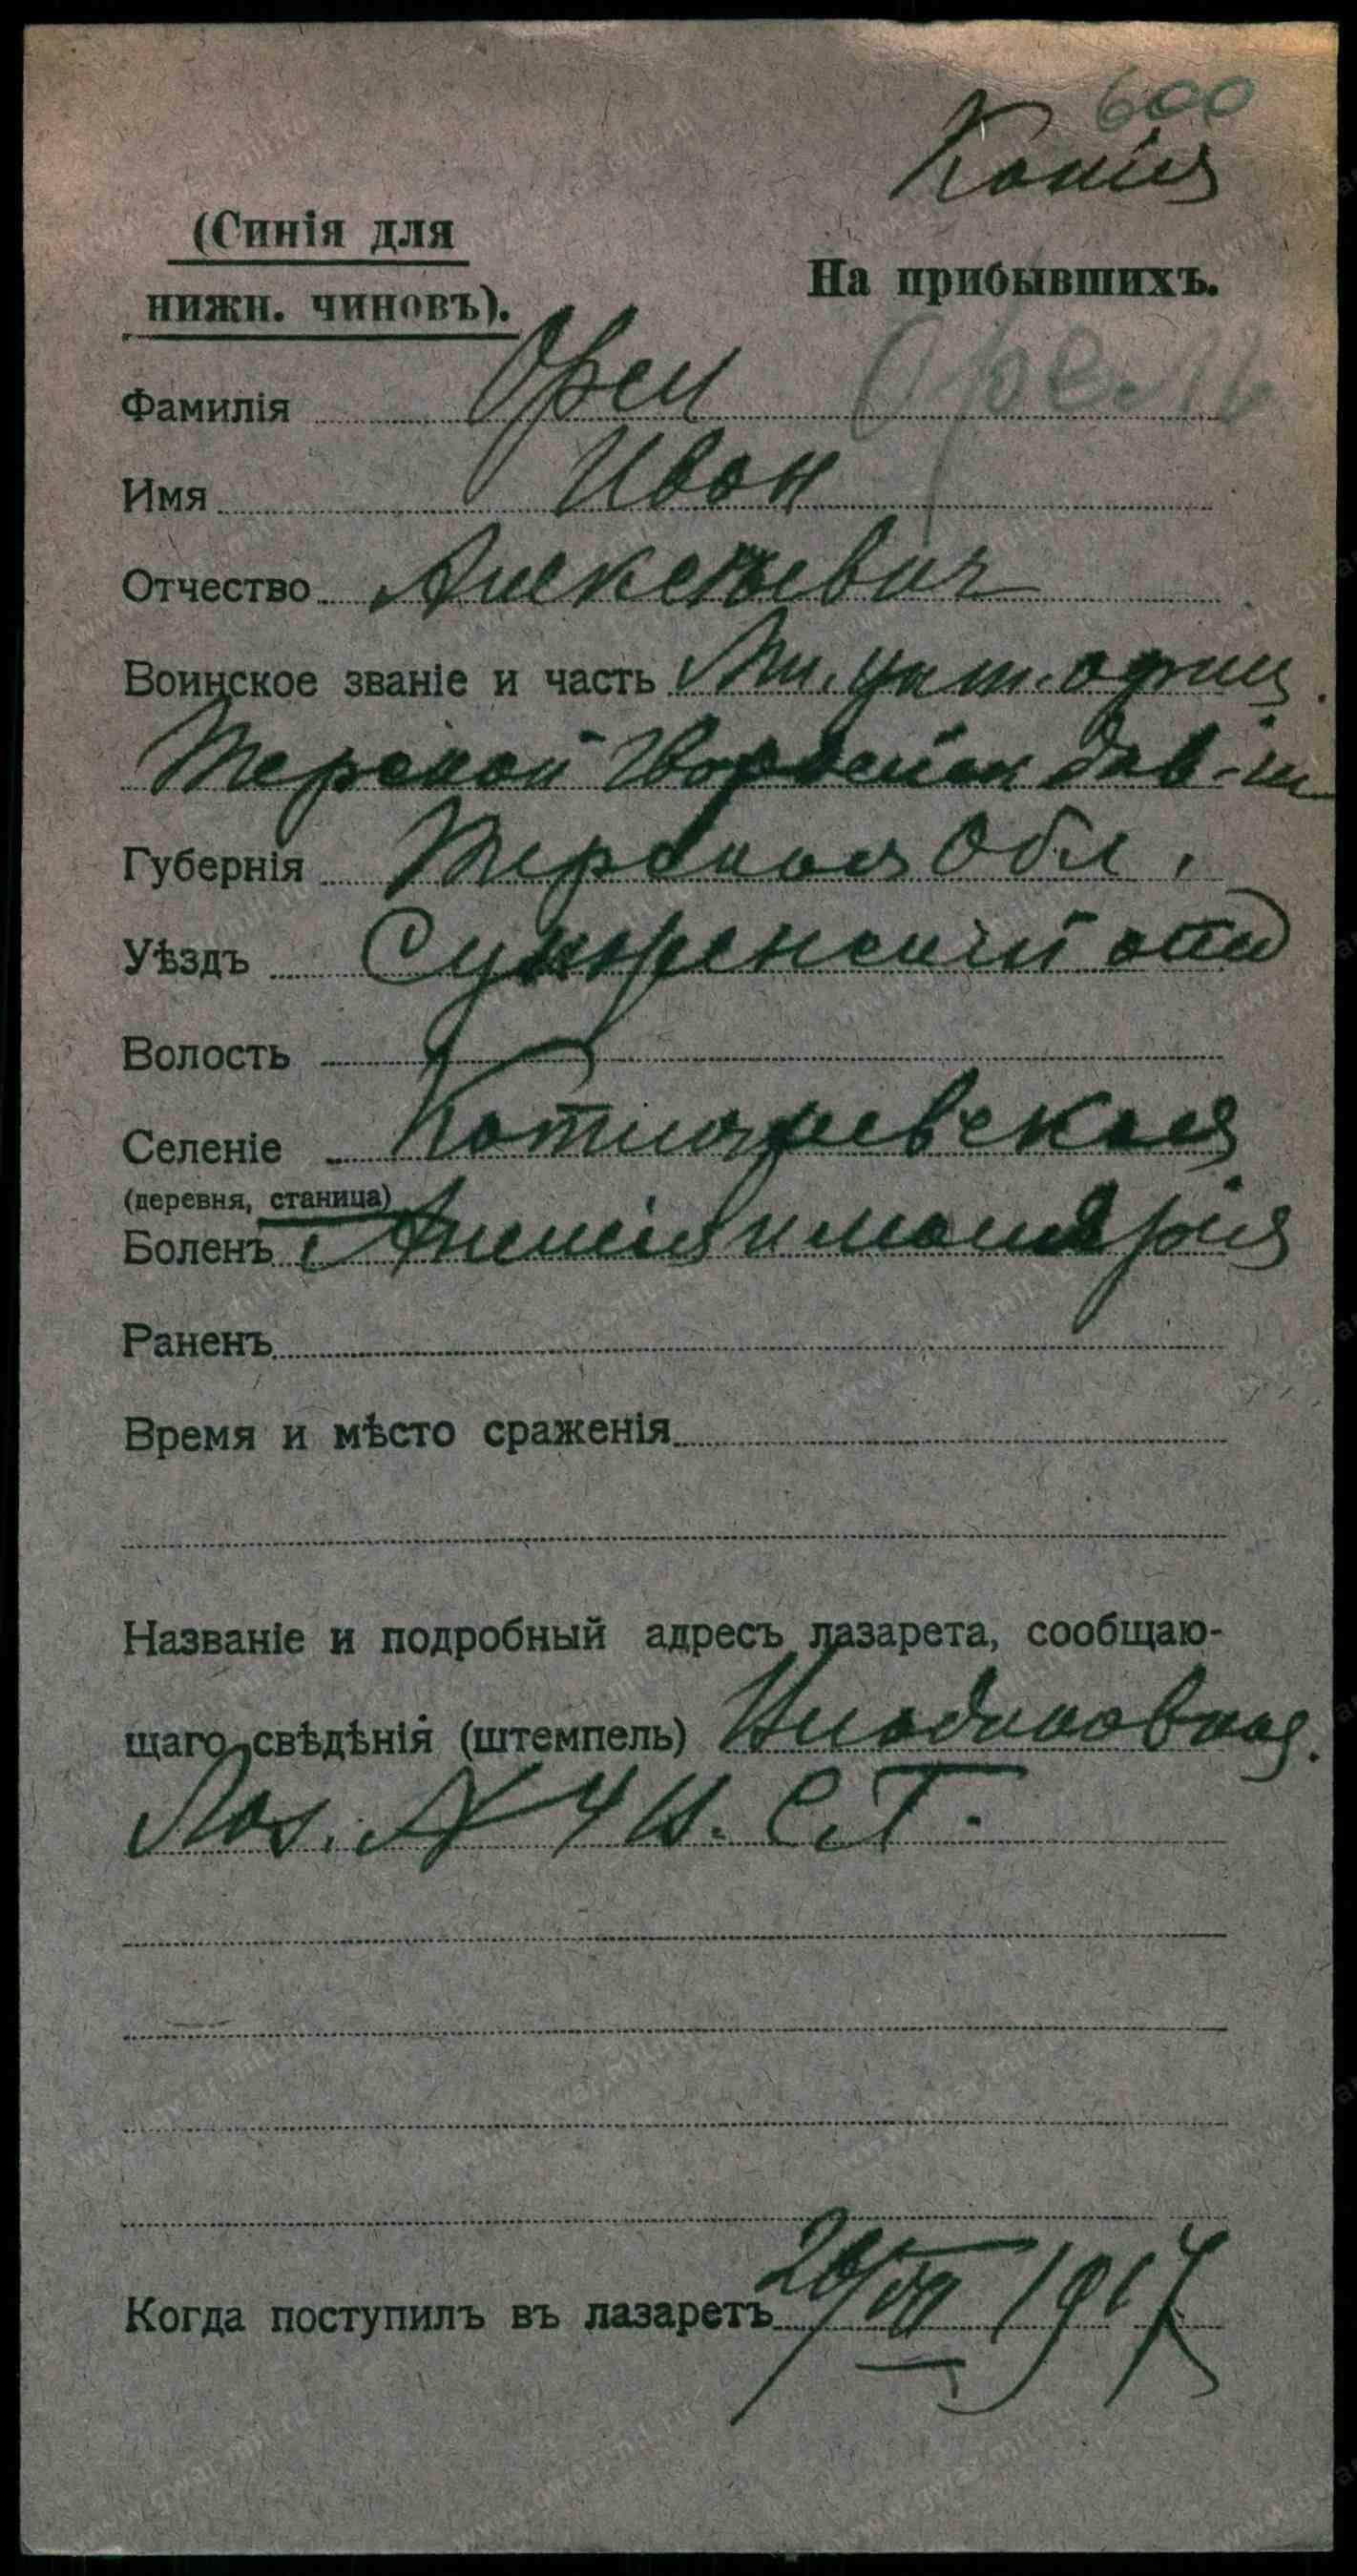 600
Копия
(Синія для
нижн. чиновъ).
На прибывшихъ.
Фамилія Орел Орелъ
Имя Иван
Отчество Алексеевич
Воинское званіе и часть Мл. унт. офиц.
Терской Гвардейск див-н
Губернія Терская Обл.
Уѣздъ Сунженский отд
Волость
Селеніе Котляревская
(деревня, станица)
Боленъ Анемія и малярія
Раненъ
Время и мѣсто сраженія
Названіе и подробный адресъ лазарета, сообщаю-
щаго свѣдѣнія (штемпель)
Лаз. № 4 И. С. Т.
Когда поступилъ въ лазаретъ 1917